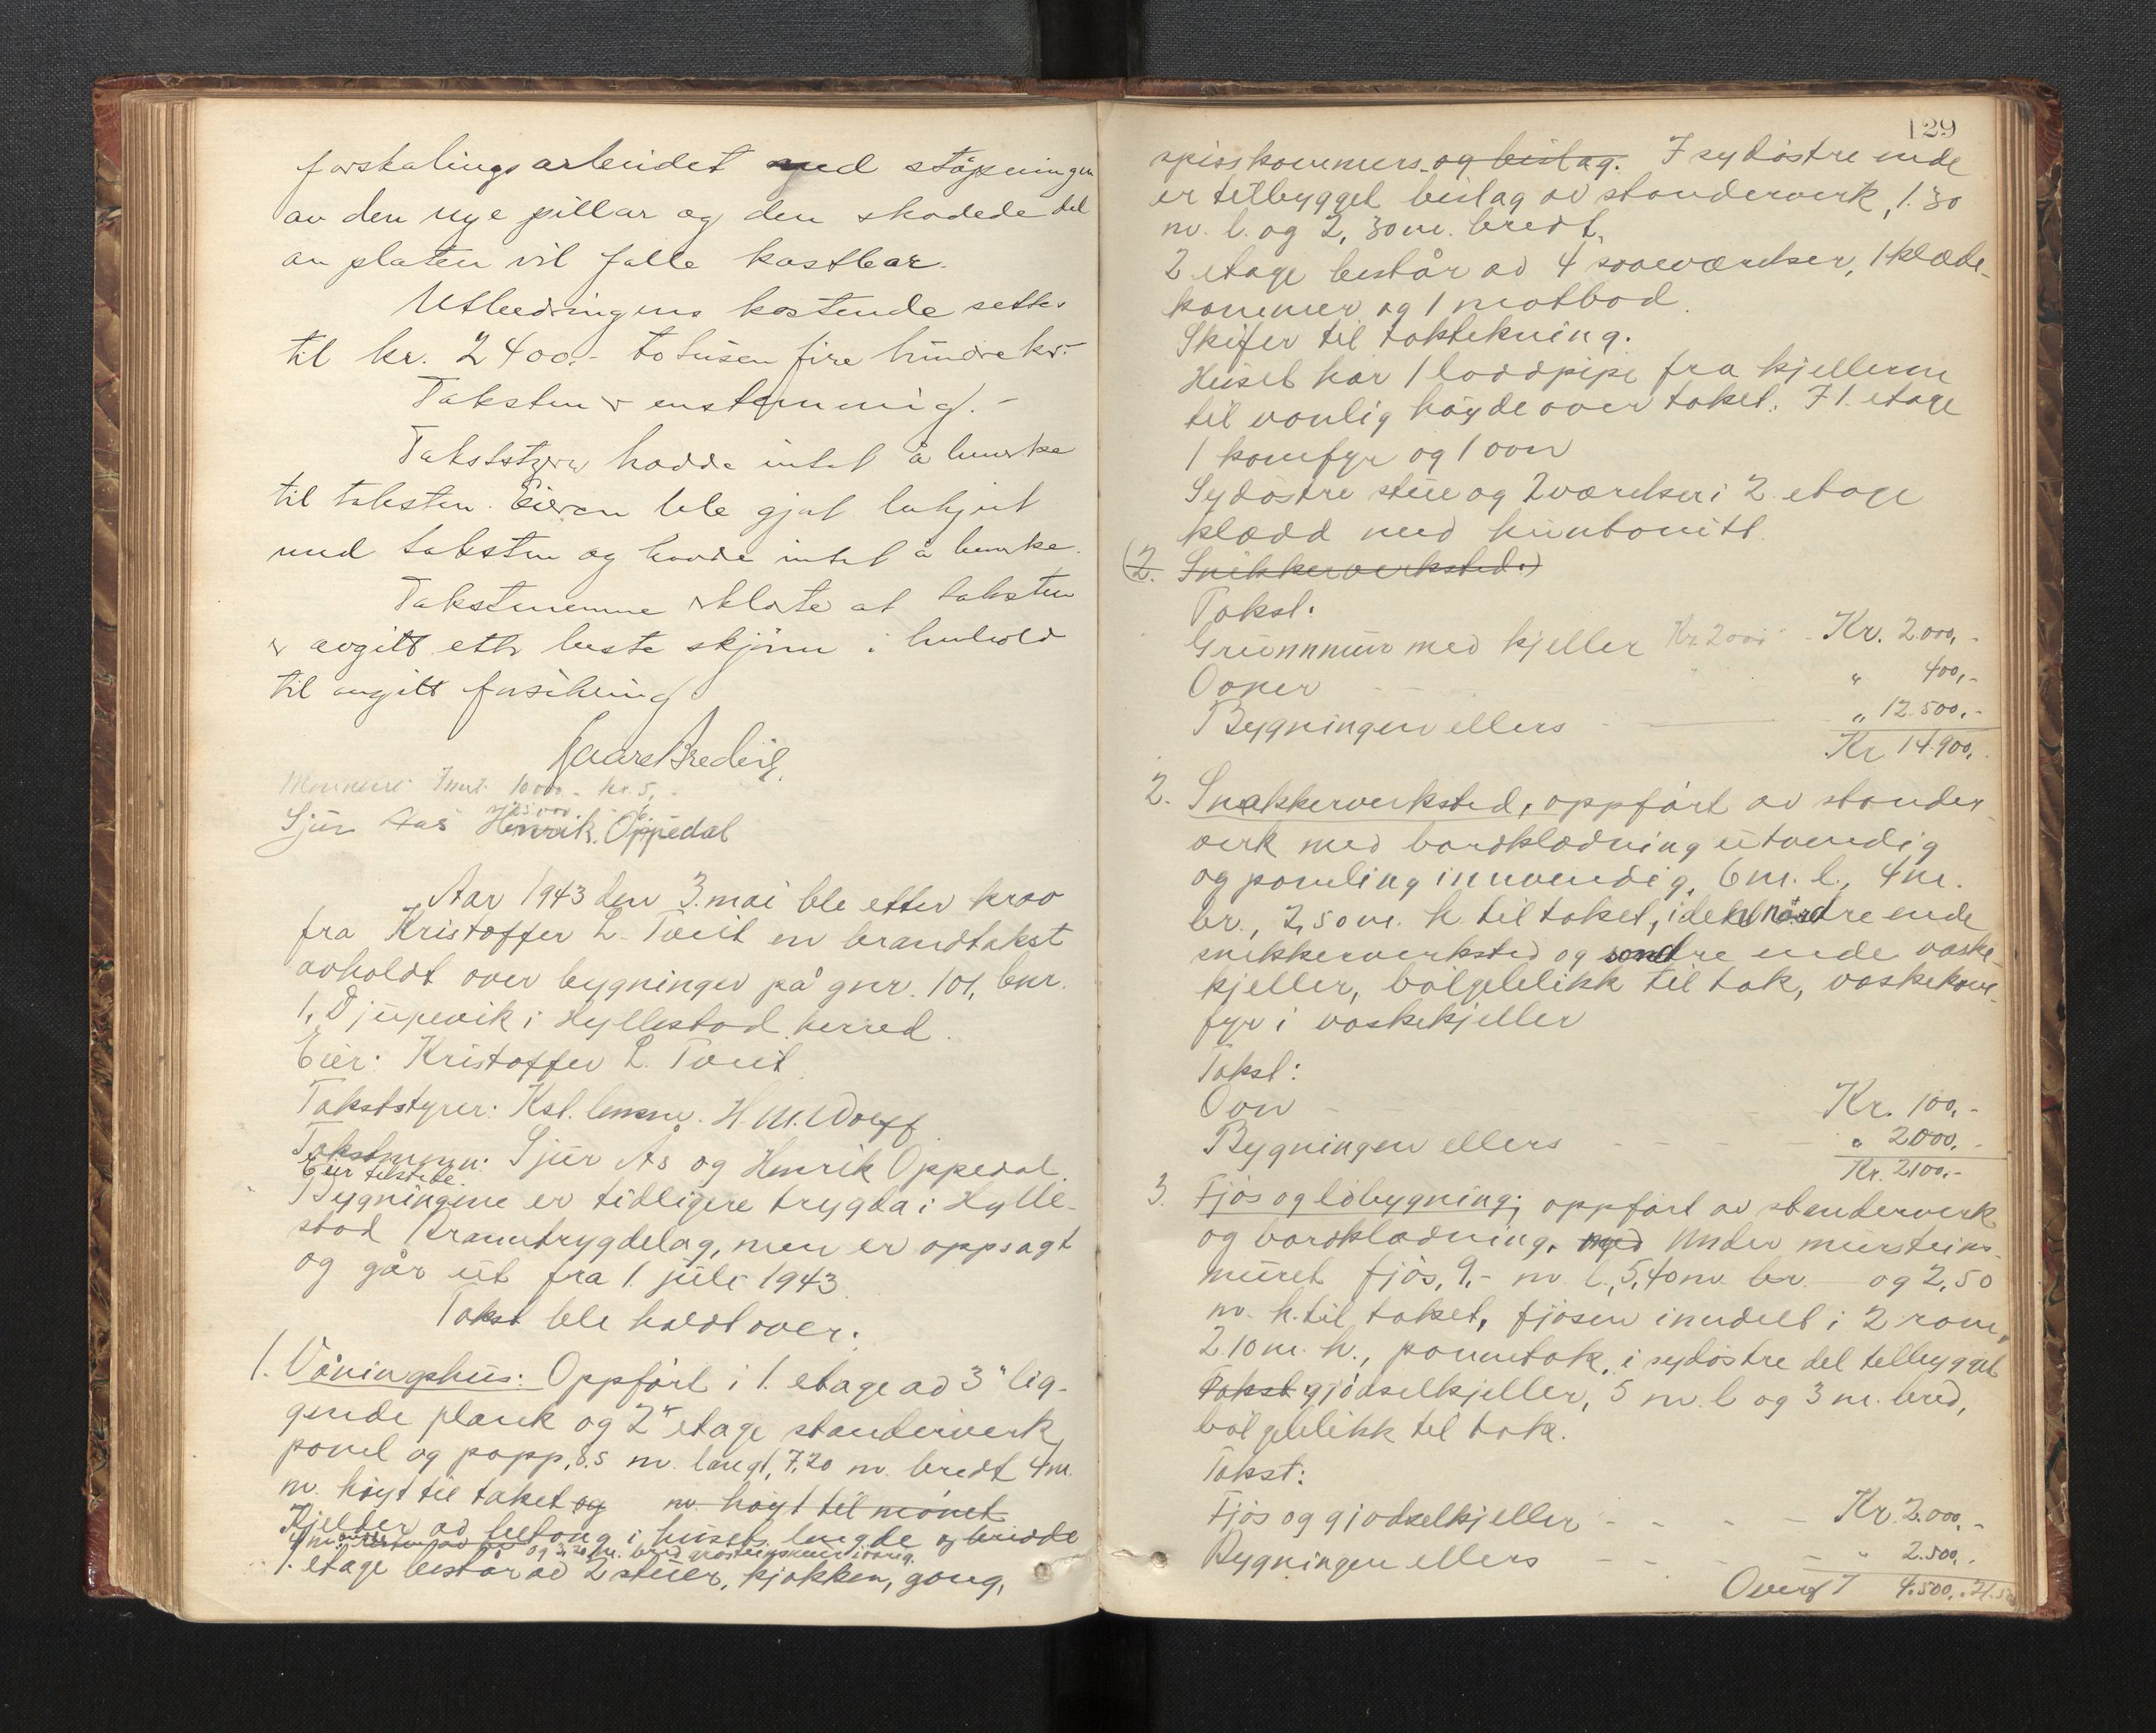 forskalingsarbeidet med støpningen
av den nye pillar og den skadede del
av platen vil falle kostbar.
Utbedringens kostende settes
til kr. 2400.- totusen fire hundre kr.-
Taksten er enstemmig.-
Takststyrer hadde intet å bemerke
til taksten. Eieren ble gjort bekjent
med taksten og hadde intet å bemerke.
Takstmennene erklærte at taksten
er avgitt etter beste skjønn i henhold
til avgitt forsikring.
Sjur Aas Henrik Oppedal
Aar 1943 den 3. mai ble etter krav
fra Kristoffer L. Tveit en brandtakst
avholdt over bygninger på gnr. 101, bnr.
1, Djupevik i Hyllestad herred.
Eier: Kristoffer L. Tveit
Takststyrer: Kst. lensm. H. M. Wolff.
Takstmenn: Sjur Ås og Henrik Oppedal.
Eier tilstede.
Bygningene er tidligere trygda i Hylle-
stad Branntrygdelag, men er oppsagt
og går ut fra 1. juli 1943.
Takst ble holdt over:
1. Våningshus: Oppført i 1. etage av 3" lig-
gende plank og 2 etage standerverk,
panel og papp, 8.5 m. langt, 7,20 m. bredt 4 m.
m. høyt til taket og m. høyt til mønet
Kjeller av betong i husets lengde og bredde
og 2,20 m. bred gråsteinsmur
1. etage består av 2 stuer, kjøkken, gang,
129
spisskammers og bislag. I sydøstre ende
er tilbygget bislag av standerverk, 1.30
m. l. og 2,30 m. bredt.
2 etage består av 4 soveværelser, 1 klæde-
kammer og 1 matbod.
Skifer til taktekning.
Huset har 1 loddpipe fra kjelleren
til vanlig høyde over taket. I 1. etage
1 komfyr og 1 ovn
Sydøstre stue og 2 værelser i 2. etage
klædd med huntonitt.
(2. Snikkerverksted.)
Takst:
Grunnmur med kjeller Kr. 2000 - Kr. 2.000,-
Ovner " 400,-
Bygningen ellers - " 12.500,-
Kr 14.900,-
2. Snekkerverksted, oppført av stander-
verk med bordklædning utvendig
og paneling innvendig, 6 m. l., 4 m.
br., 2,50 m. h. til taket, i den nordre ende
snikkerverksted og søndre ende vaske-
kjeller, bølgeblikk til tak, vaskekom-
fyr i vaskekjeller
Takst:
Ovn - Kr. 100,-
Bygningen ellers - - - - " 2000,-
Kr. 2100,-
3. Fjøs og løbygning; oppført av standerverk
og bordklædning, med Under mursteins-
muret fjøs, 9,- m. l., 5,40 m. br. og 2,50
m. h. til taket, fjøsen inndelt i 2 rom,
2.10 m. h., panntak, i sydøstre del tilbygget
Takst gjødselkjeller, 5 m. l og 3 m. bred,
bølgeblikk til tak.
Takst:
Fjøs og gjødselkjeller - - - - Kr. 2.000,-
Bygningen ellers - - - - " 2.500,-
Overf 7 4.500,-